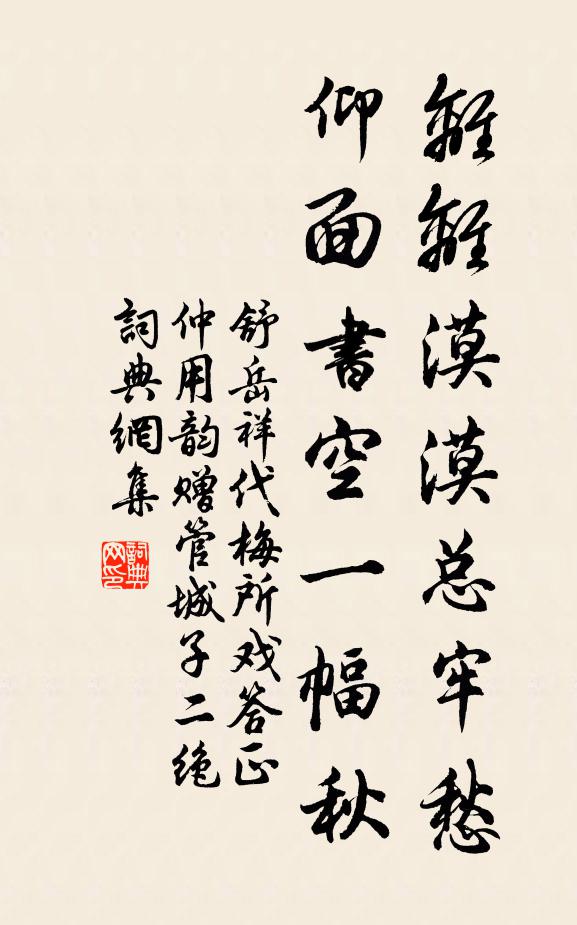 離離漠漠总牢愁
仰面書空一幅秋
舒岳祥代梅所戏答正
仲用韵赠管城子二绝
詞典網集
詞典网印